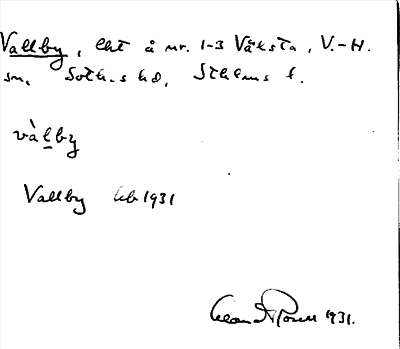 Vallby, lht å nr. 1-3 Väksta, V.-H.
sn, Soth-s hd, Sthlms l.
vàlby
Vallby hb 1931
1931.